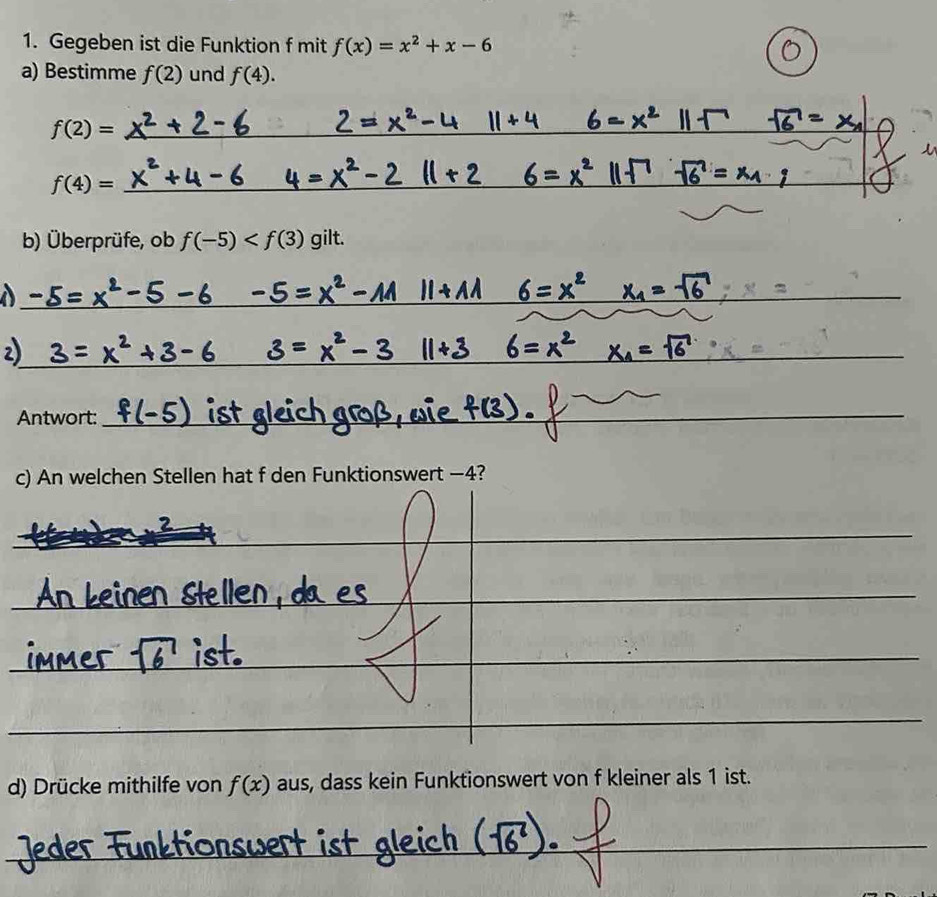 1. Gegeben ist die Funktion f mit f(x) = x² + x − 6
0
a) Bestimme f(2) und f(4).
f(2) = x² + 2 - 6 2 = x² - 4 || + 4 6 = x² || √ √6 = x₁ f
f(4) = x² + 4 - 6 4 = x² - 2 || + 2 6 = x² || √ √6 = x₁ ;
b) Überprüfe, ob f(−5) < f(3) gilt.
1) -5 = x² - 5 - 6 -5 = x² - 11 || + 11 6 = x² x₁ = √6 ; x =
2) 3 = x² + 3 - 6 3 = x² - 3 || + 3 6 = x² x₁ = √6
Antwort: f(-5) ist gleich groß, wie f(3). f
c) An welchen Stellen hat f den Funktionswert −4?
An keinen Stellen, da es f
immer √6 ist.
d) Drücke mithilfe von f(x) aus, dass kein Funktionswert von f kleiner als 1 ist.
Jeder Funktionswert ist gleich (√6²). f